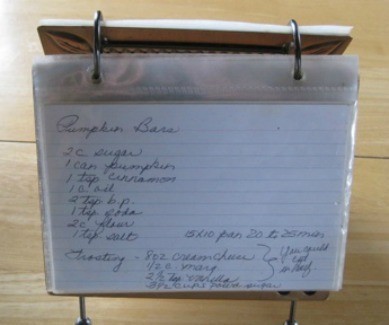 Pumpkin Bars
2 c sugar
1 can pumpkin
1 tsp cinnamon
1 c oil
2 tsp b.p.
1 tsp soda
2 c flour
1 tsp salt 15x10 pan 20 to 25 min
Frosting - 8 oz cream cheese
1/2 c marg
2 tsp vanilla
cups powd sugar
You could